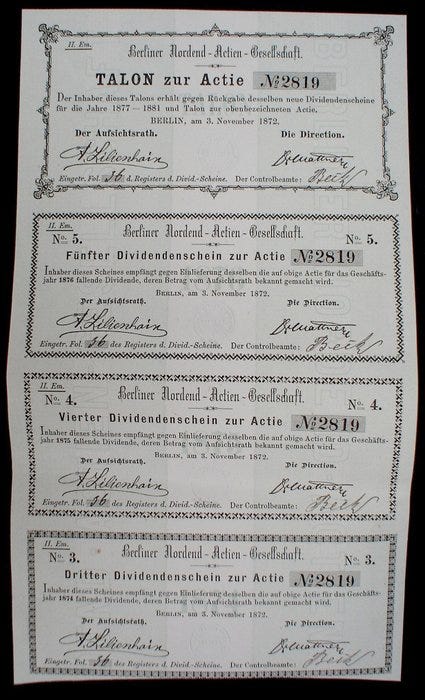 II. Em.
Berliner Nordend-Actien-Gesellschaft.
TALON zur Actie No 2819
Der Inhaber dieses Talons erhält gegen Rückgabe desselben neue Dividendenscheine
für die Jahre 1877 — 1881 und Talon zur obenbezeichneten Actie.
BERLIN, am 3. November 1872.
Der Aufsichtsrath. Die Direction.
A. Lilienhain
Eingetr. Fol. 56 d. Registers d. Divid.-Scheine. Der Controlbeamte: Beck
II. Em.
Berliner Nordend-Actien-Gesellschaft.
No. 5. No. 5.
Fünfter Dividendenschein zur Actie No 2819
Inhaber dieses Scheines empfängt gegen Einlieferung desselben die auf obige Actie für das Geschäfts-
jahr 1876 fallende Dividende, deren Betrag vom Aufsichtsrath bekannt gemacht wird.
BERLIN, am 3. November 1872.
Der Aufsichtsrath. Die Direction.
A. Lilienhain
Eingetr. Fol. 56 des Registers d. Divid.-Scheine. Der Controlbeamte: Beck
II. Em.
Berliner Nordend-Actien-Gesellschaft.
No. 4. No. 4.
Vierter Dividendenschein zur Actie No 2819
Inhaber dieses Scheines empfängt gegen Einlieferung desselben die auf obige Actie für das Geschäfts-
jahr 1875 fallende Dividende, deren Betrag vom Aufsichtsrath bekannt gemacht wird.
BERLIN, am 3. November 1872.
Der Aufsichtsrath. Die Direction.
A. Lilienhain
Eingetr. Fol. 56 des Registers d. Divid.-Scheine. Der Controlbeamte: Beck
II. Em.
Berliner Nordend-Actien-Gesellschaft.
No. 3. No. 3.
Dritter Dividendenschein zur Actie No 2819
Inhaber dieses Scheines empfängt gegen Einlieferung desselben die auf obige Actie für das Geschäfts-
jahr 1874 fallende Dividende, deren Betrag vom Aufsichtsrath bekannt gemacht wird.
BERLIN, am 3. November 1872.
Der Aufsichtsrath. Die Direction.
A. Lilienhain
Eingetr. Fol. 56 des Registers d. Divid.-Scheine. Der Controlbeamte: Beck